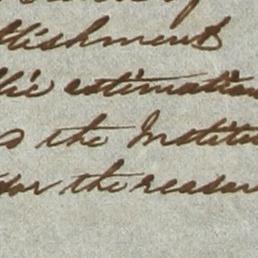 tlishment
lic estimation
s the Institu
for the reason